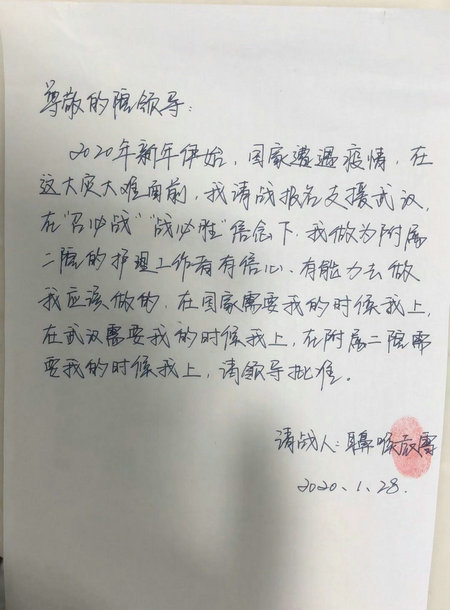 尊敬的院领导:
2020年新年伊始，国家遭遇疫情，在
这大灾大难面前，我请战报名支援武汉，
在"召必战""战必胜"信念下，我做为附属
二院的护理工作者有信心、有能力去做
我应该做的，在国家需要我的时候我上，
在武汉需要我的时候我上，在附属二院需
要我的时候我上，请领导批准。
请战人:耳鼻喉
2020.1.28.